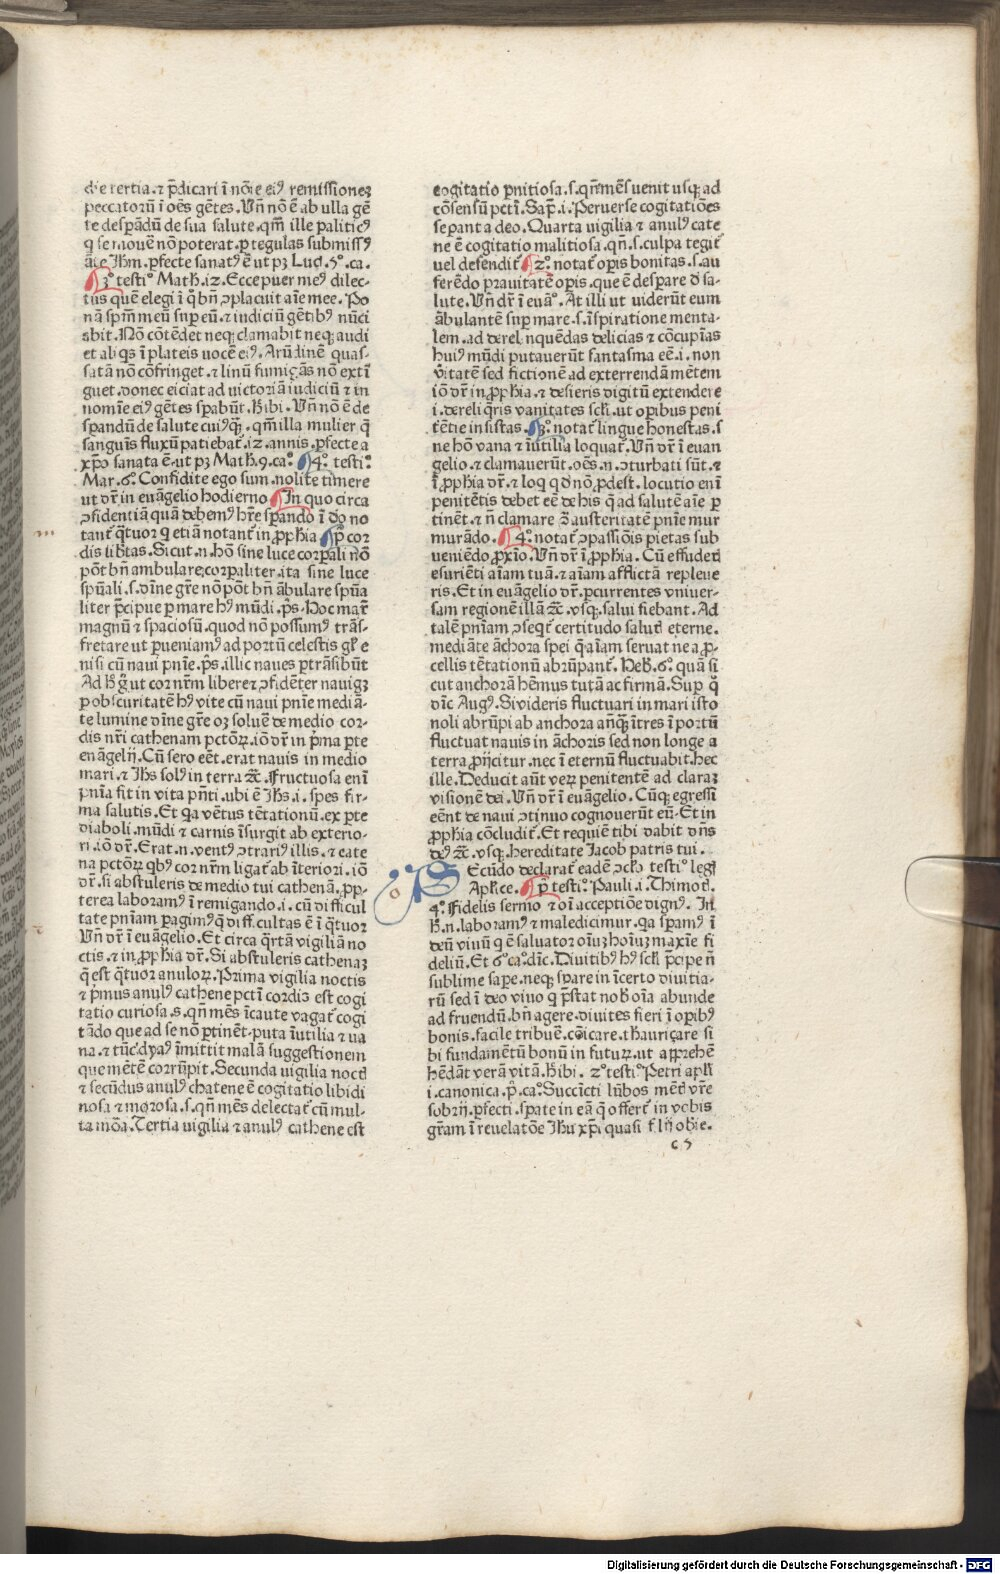 die tertia.⁊ p̄dicari ī nōīe eiꝰ remissioneꝫ
peccatorū ī oēs gētes.Vn̄ nō ē ab ulla gē
te desꝑādū de sua salute.qm̄ ille paliticꝰ
q se mouē nō poterat.ꝑ tegulas submissꝰ
āte Jhm̄.ꝑfecte sanatꝰ ē ut pꝫ Luc̄.5°.ca.
¶3° testi° Math.12.Ecce puer meꝰ dilec-
tus quē elegi ī q̊ bn̄ ꝯplacuit aīe mee.Po
nā spm̄ meū suꝑ eū.⁊ iudiciū gētibꝰ nūci
abit.Nō cōtēdet neqꝫ clamabit neqꝫ audi
et abqs ī plateis uocē eiꝰ.Arūdinē quas-
satā nō cōfringet.⁊ linū fumigās nō extī
guet.donec eiciat ad uictoriā iudiciū ⁊ in
nomīe eiꝰ gētes sꝑabūt.hibi.Vn̄ nō ē de
sꝑandū de salute cuiꝰqꝫ.qm̄ illa mulier q̄
sanguīs fluxū patiebat̄.12.annis.ꝑfecte a
xp̄o sanata ē.ut pꝫ Math.9.ca° ¶4° testi°
Mar.6° Confidite ego sum.nolite timere
ut dr̄ in euāgelio hodierno ¶In quo circa
ꝯfidentiā quā debemꝰ hr̄e sꝑando ī deo no
tant̄ q̄tuor q̄ etiā notant̄ in ꝓphia ¶P̄ cor
dis lib̄tas.Sicut.n.hō sine luce corꝑali nō
pōt bn̄ ambulare corꝑaliter.ita sine luce
sp̄uali.s.dīne gr̄e nō pōt bn̄ ābulare sp̄ua
liter p̄cipue ꝑ mare hꝰ mūdi.p̄s.Hoc mar̄
magnū ⁊ spaciosū.quod nō possumꝰ trās-
fretare ut ꝑueniamꝰ ad portū celestis gl̄e
nisi cū naui pn̄ie.p̄s.illic naues ꝑtrāsibūt
Ad h̄ g̊ ut cor nr̄m libere ⁊ ꝯfidēter nauigꝫ
ꝑ obscuritatē hꝰ vite cū naui pn̄ie mediā-
te lumine dīne gr̄e oꝫ soluē de medio cor-
dis nr̄i cathenam pctōꝝ.iō dr̄ in p̄ma ꝑte
euāgelij.Cū sero eēt.erat nauis in medio
mari.⁊ Jhs solꝰ in terra ⁊c̄.Fructuosa enī
pn̄ia fit in vita pn̄ti.ubi ē Jhs.i.spes fir-
ma salutis.Et q̄a vētus tētationū.ex ꝑte
diaboli.mūdi ⁊ carnis īsurgit ab exterio-
ri.iō dr̄.Erat.n.ventꝰ ꝯtrariꝰ illis.⁊ cate
na pctōꝝ qbꝰ cor nr̄m ligat̄ ab īteriori.iō
dr̄.si abstuleris de medio tui cathenā.ꝓp-
terea laboramꝰ ī remigando.i.cū difficul
tate pn̄iam ꝑagimꝰ q̄ difficultas ē ī q̄tuor
Vn̄ dr̄ ī euāgelio.Et circa q̄rtā vigiliā no
ctis.⁊ in ꝓphia dr̄.Si abstuleris cathenaꝫ
q̄ est q̄tuor anuloꝝ.Prima vigilia noctis
⁊ p̄mus anulꝰ cathene pcti cordis est cogi
tatio curiosa.s.qn̄ mēs īcaute vagat̄ cogi
tādo que ad se nō ꝑtinēt.puta īutilia ⁊ ua
na.⁊ tūc dyaꝰ īmittit malā suggestionem
que mētē corrūpit.Secunda vigilia noct̄
⁊ secūdus anulꝰ chatene ē cogitatio libidi
nosa ⁊ morosa.s.qn̄ mēs delectat̄ cū mul-
ta mōa.Tertia vigilia ⁊ anulꝰ cathene est
cogitatio ꝑnitiosa.s.qn̄ mēs uenit usqꝫ ad
cōsensū pcti.Sap̄.i.Peruerse cogitatiōes
seꝑant a deo.Quarta vigilia ⁊ anulꝰ cate
ne ē cogitatio malitiosa.qn̄.s.culpa tegit̄
vel defendit̄ ¶2° notat̄ oꝑis bonitas.s.au
ferēdo prauitatē oꝑis.que ē desꝑare d̄ sa-
lute.Vn̄ dr̄ ī euā°.At illi ut uiderūt eum
ābulantē suꝑ mare.s.īspiratione menta-
lem.ad derelinquēdas delicias ⁊ cōcupīas
huiꝰ mūdi putauerūt fantasma eē.i.non
v̄itatē sed fictionē ad exterrendā mētem
iō dr̄ in ꝓphia.⁊ desieris digitū extendere
i.dereliq̄ris vanitates scl̄i.ut oꝑibus peni
tētie insistas.¶3° notat̄ lingue honestas.s
ne hō vana ⁊ īutilia loquat̄.Vn̄ dr̄ ī euan
gelio.⁊ clamauerūt.oēs.n.ꝯturbati sūt.⁊
ī ꝓphia dr̄.⁊ loq̄ qd nō ꝓdest.locutio enī
penitētis debet eē de his q̄ ad salutē aīe ꝑ
tinēt.⁊ n̄ clamare ꝯ̄ austeritatē pn̄ie mur
murādo.¶4° notat̄ ꝯpassiōis pietas sub
ueniēdo ꝓxīo.Vn̄ dr̄ ī ꝓphia.Cū effuder̄
esuriēti aīam tuā.⁊ aīam afflictā repleue
ris.Et in euāgelio dr̄.ꝑcurrentes vniuer-
sam regionē illā ⁊c̄.vsqꝫ.salui fiebant.Ad
talē pn̄iam ꝯseqt̄ certitudo salut̄ eterne.
mediāte āchora spei q̄ aīam seruat ne a ꝓ-
cellis tētationū abrūpant̄.Heb̄.6° quā si
cut anchorā hēmus tutā ac firmā.Suꝑ q̊
dīc Augꝰ.Si videris fluctuari in mari isto
noli abrūpi ab anchora anq̄ꝫ ītres ī portū
fluctuat nauis in āchoris sed non longe a
terra ꝓijcitur.nec ī eternū fluctuabit.hec
ille.Deducit aūt veꝝ penitentē ad claraꝫ
visionē dei.Vn̄ dr̄ ī euāgelio.Cūqꝫ egressi
eēnt de naui ꝯtinuo cognouerūt eū.Et in
ꝓphia cōcludit̄.Et requiē tibi dabit dn̄s
deꝰ ⁊c̄.vsqꝫ.hereditate Jacob patris tui.
SEcūdo declarat̄ eadē ꝯclo testi° leḡ
Aplice.¶P̄ testi° Pauli.i.Thimot̄.
4° Fidelis sermo ⁊ oī acceptiōe dignꝰ.In
h̄.n.laboramꝰ ⁊ maledicimur.qa sꝑamꝰ ī
deū viuū q̄ ē saluator oīuꝫ hoīuꝫ maxīe fi
deliū.Et 6° ca° dīc.Diuitibꝰ hꝰ scl̄i p̄cipe n̄
sublime saꝑe.neqꝫ sꝑare in īcerto diuitia-
rū sed ī deo viuo q̄ p̄stat nob̄ oīa abunde
ad fruendū.bn̄ agere.diuites fieri ī oꝑibꝰ
bonis.facile tribuē.cōicare.thauriçare si
bi fundamētū bonū in futuꝝ.ut apprehē
hēdāt verā vitā.hibi.2° testi° Petri apl̄i
i.canonica.p̄.ca° Succīcti lūbos ment̄ vr̄e
sobrij.ꝑfecti.sꝑate in eā q̄ offert̄ in vobis
gr̄am ī reuelatōe Jhu xp̄i quasi filij obīe.
c 5
Digitalisierung gefördert durch die Deutsche Forschungsgemeinschaft - DFG